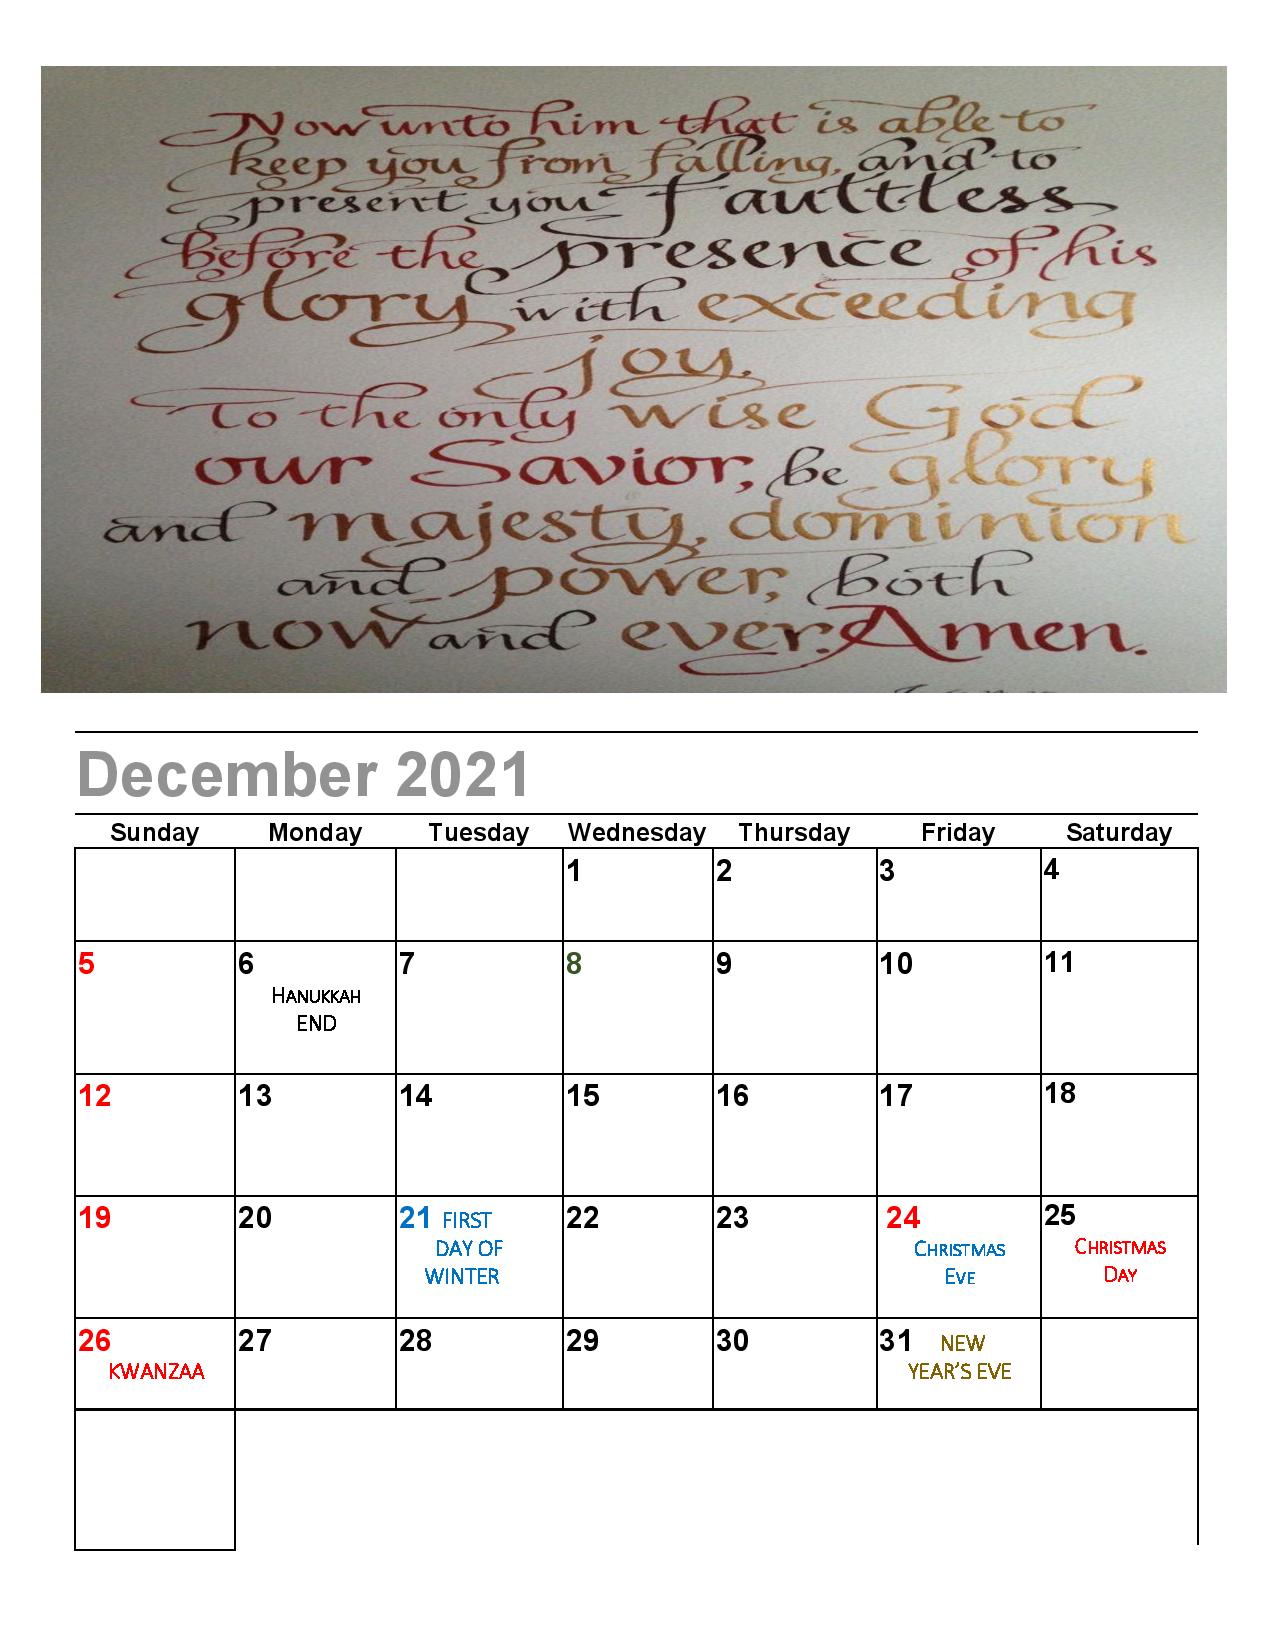 Now unto him that is able to
keep you from falling, and to
present you faultless
before the presence of his
glory with exceeding
joy.
To the only wise God
our Savior, be glory
and majesty, dominion
and power, both
now and ever. Amen.
December 2021
Sunday Monday Tuesday Wednesday Thursday Friday Saturday
1 2 3 4
5 6 7 8 9 10 11
HANUKKAH
END
12 13 14 15 16 17 18
19 20 21 FIRST 22 23 24 25
DAY OF CHRISTMAS CHRISTMAS
WINTER EVE DAY
26 27 28 29 30 31 NEW
KWANZAA YEAR'S EVE